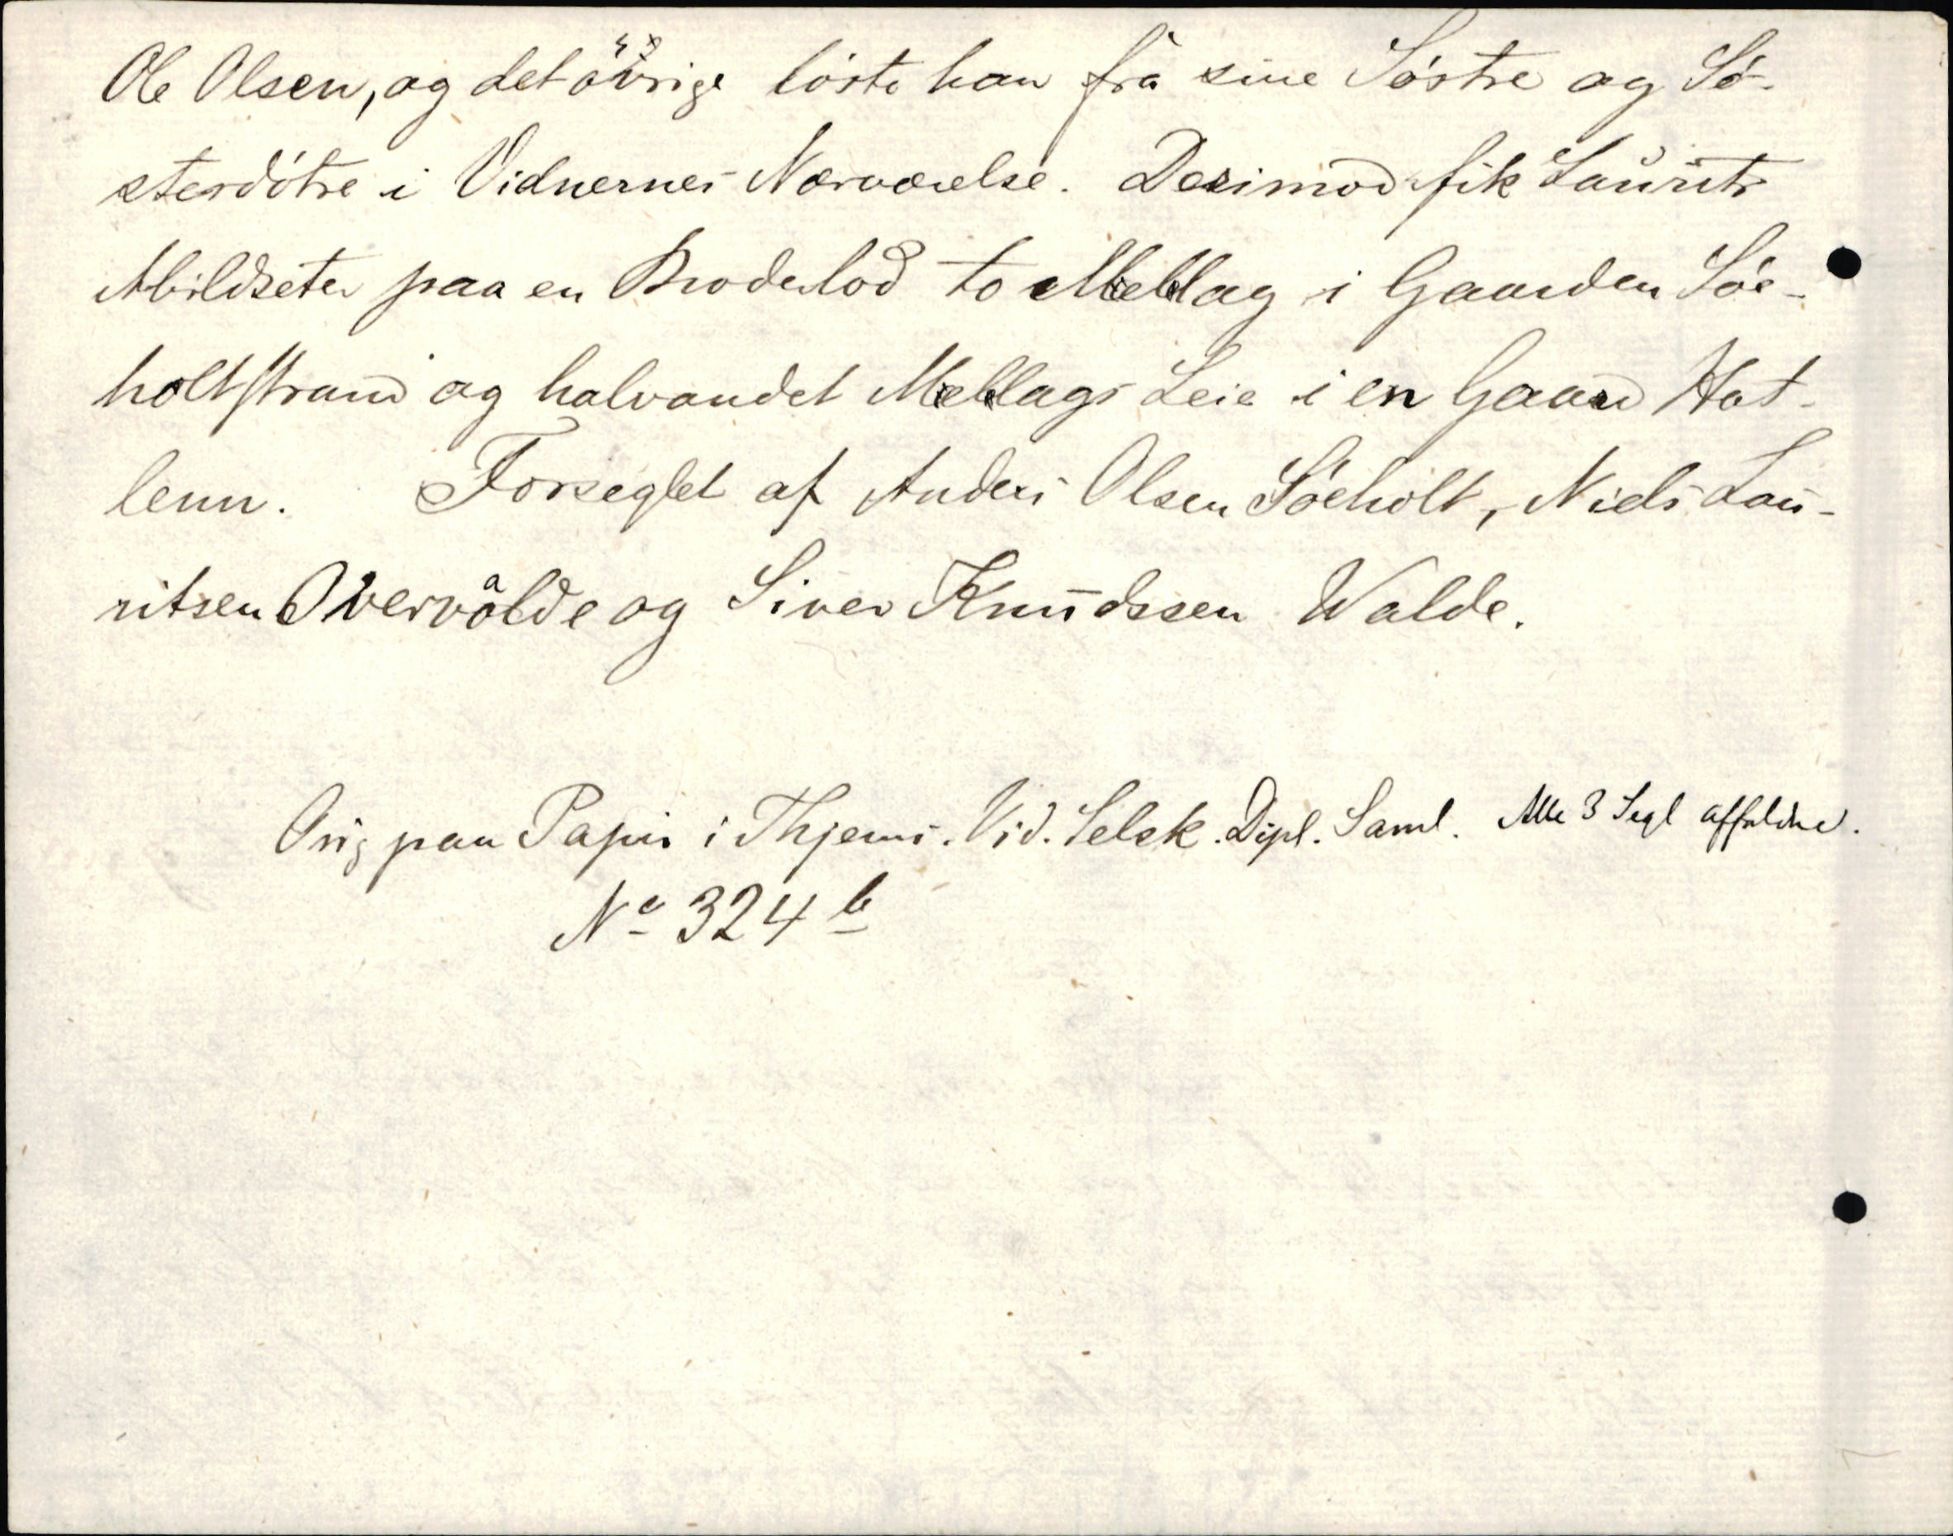 Ole Olsen, og det övrige löste han frå sine Söstre og Sö-
sterdötre i Vidnernes Nærværelse. Derimod fik Laurits
Mildseter paa en Broderlod to Mellag i Gaarden Söe-
holtstrand og halvandet Mellags Leie i en Gaard Hat-
lenn. Forseglet af Anders Olsen Söeholt, Niels Lau-
ritsen Overvålde og Siver Knudssen Walde.
Orig paa Papir i Thjems. Vid. Selsk. Dipl. Saml. Alle 3 Segl affaldne.
No 324 b